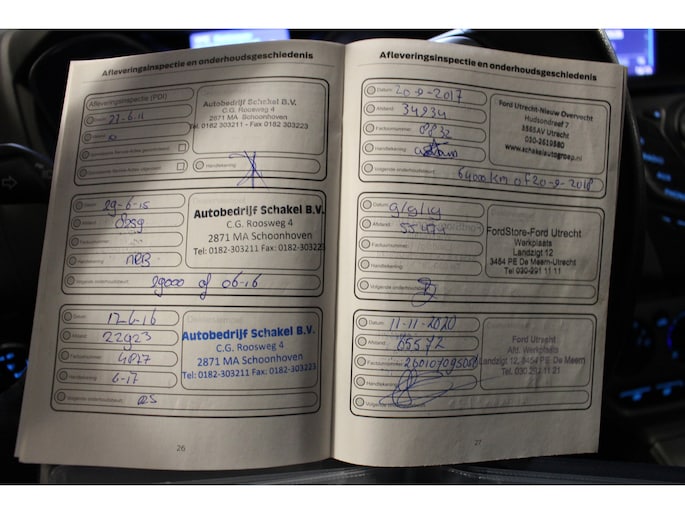 Afleveringsinspectie en onderhoudsgeschiedenis
Afleveringsinspectie (PDI)
Autobedrijf Schakel B.V.
C.G. Roosweg 4
2871 MA Schoonhoven
Tel. 0182 303211 - Fax 0182 303223
Handtekening:
Datum: 29-6-15
Afstand:
Factuurnummer:
Handtekening:
Volgende onderhoudsbeurt: 29000 of 06-16
Autobedrijf Schakel B.V.
C.G. Roosweg 4
2871 MA Schoonhoven
Tel: 0182-303211 Fax: 0182-303223
Datum: 17-6-16
Afstand: 22923
Factuurnummer: 4827
Handtekening: 6-17
Volgende onderhoudsbeurt:
Autobedrijf Schakel B.V.
C.G. Roosweg 4
2871 MA Schoonhoven
Tel: 0182-303211 Fax: 0182-303223
26
Afleveringsinspectie en onderhoudsgeschiedenis
Datum: 20-9-2017
Afstand: 34934
Factuurnummer: 8832
Handtekening:
Volgende onderhoudsbeurt: 64000 km of 20-9-2018
Ford Utrecht-Nieuw Overvecht
Hudsondreef 7
3565AV Utrecht
030-2619580
www.schakelautogroep.nl
Datum: 9/9/19
Afstand:
Factuurnummer:
Handtekening:
Volgende onderhoudsbeurt:
FordStore-Ford Utrecht
Werkplaats
Landzigt 12
3454 PE De Meern-Utrecht
Tel 030-291 11 11
Datum: 11-11-2020
Afstand: 65572
Factuurnummer:
Handtekening:
Volgende onderhoudsbeurt:
Ford Utrecht
Afd. Werkplaats
Landzigt 12, 3454 PE De Meern
Tel. 030 291 11 21
27